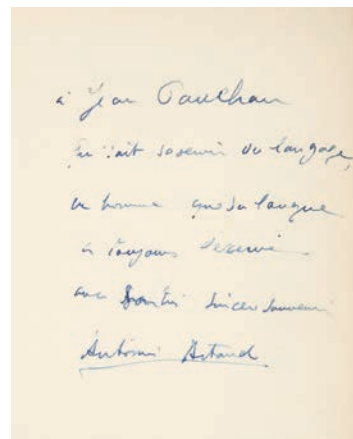 à Jean Paulhan
qui sait se servir du langage,
un homme que sa langue
a toujours desservi
avec sincère souvenir
Antonin Artaud